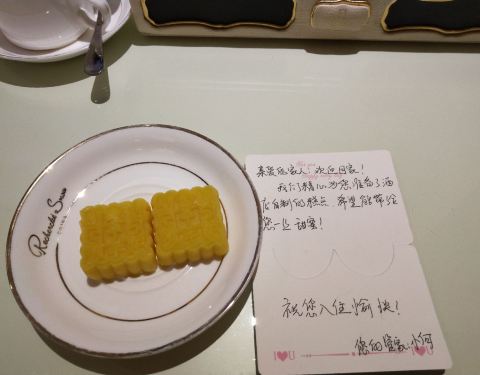 亲爱的家人：欢迎回家！
我们精心为您准备了酒
店自制的糕点，希望能带给
您一丝甜蜜！
祝您入住愉快！
您的管家：小何
I❤U